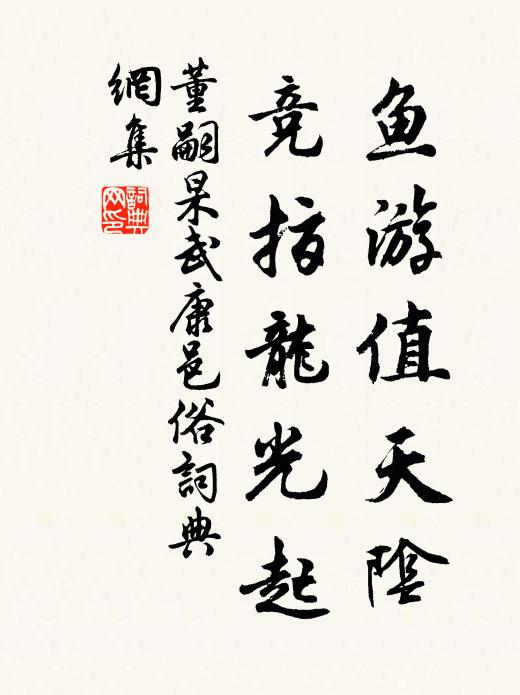 鱼游值天陰
竞指龍光起
董嗣杲武康邑俗詞典
網集
詞典網印